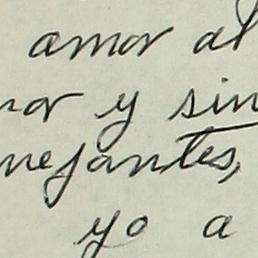 amor al
nor y sin
nejantes,
yo a